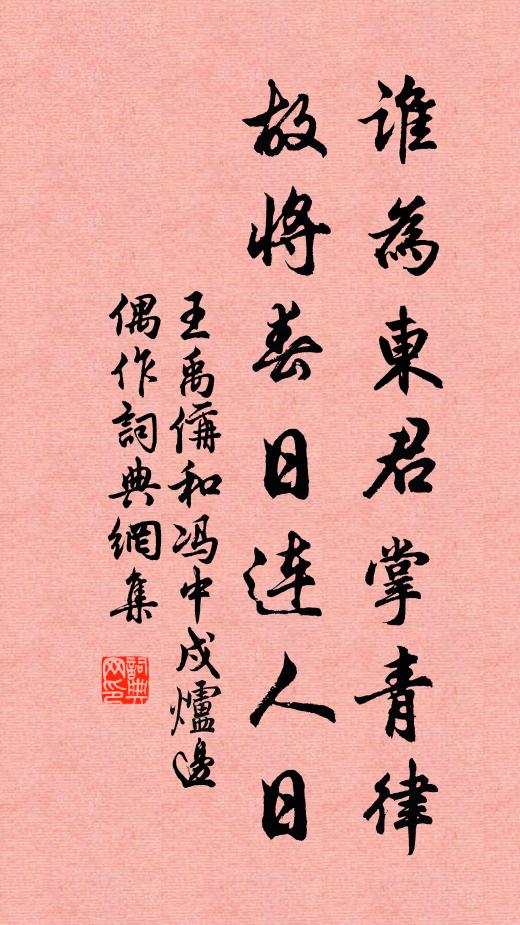 誰為東君掌青律
故將春日连人日
王禹偁和冯中戍爐邊
偶作詞典網集
詞典网印